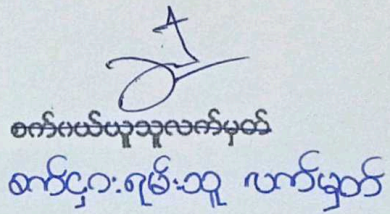 စက်ဝယ်ယူသူလက်မှတ်
စက်ငှားရမ်းသူ လက်မှတ်